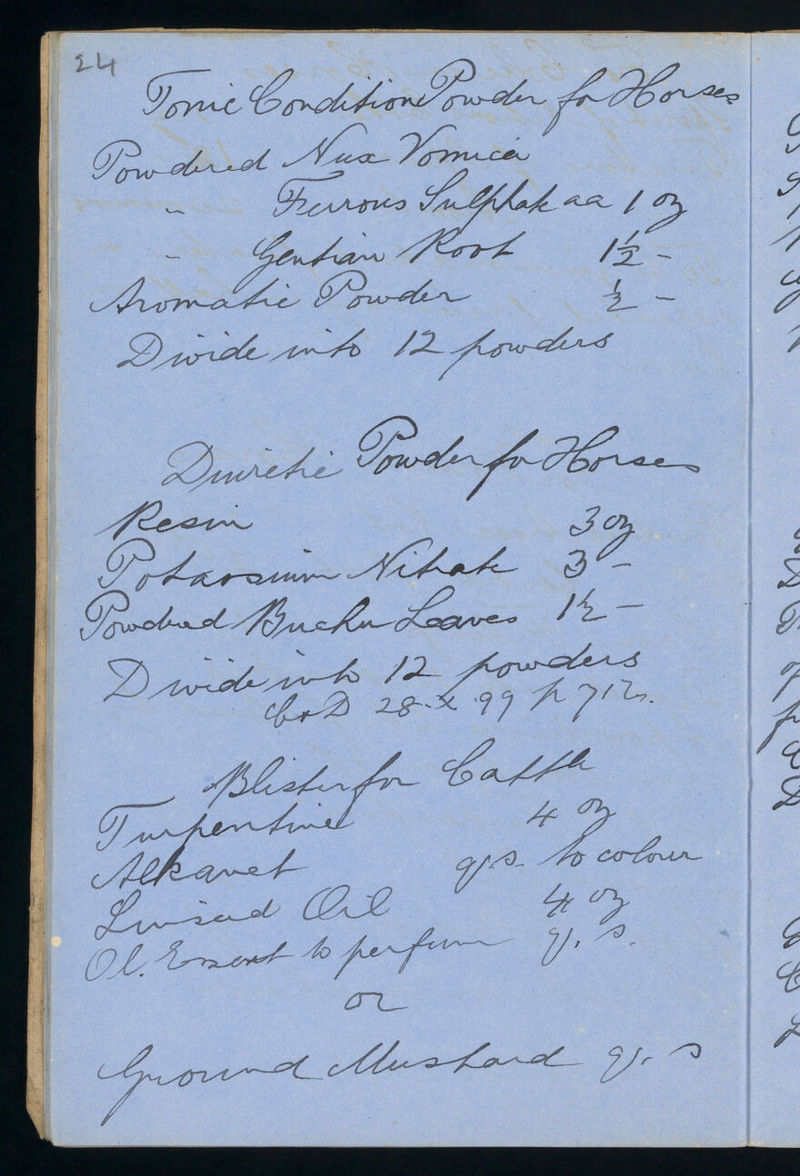 24
Tonic Condition Powder for Horses
Powdered Nux Vomica
" Ferrous Sulphate aa 1 oz
" Gentian Root 1½ -
Aromatic Powder ½ -
Divide into 12 powders
Diuretic Powder for Horses
Resin 3 oz
Potassium Nitrate 3 -
Powdered Buchu Leaves 1½ -
Divide into 12 powders
C & D 28.X.99 p 712.
Blister for Cattle
Turpentine 4 oz
Alkanet q.s. to colour
Linseed Oil 4 oz
Ol. to perfume q.s.
or
Ground Mustard q.s